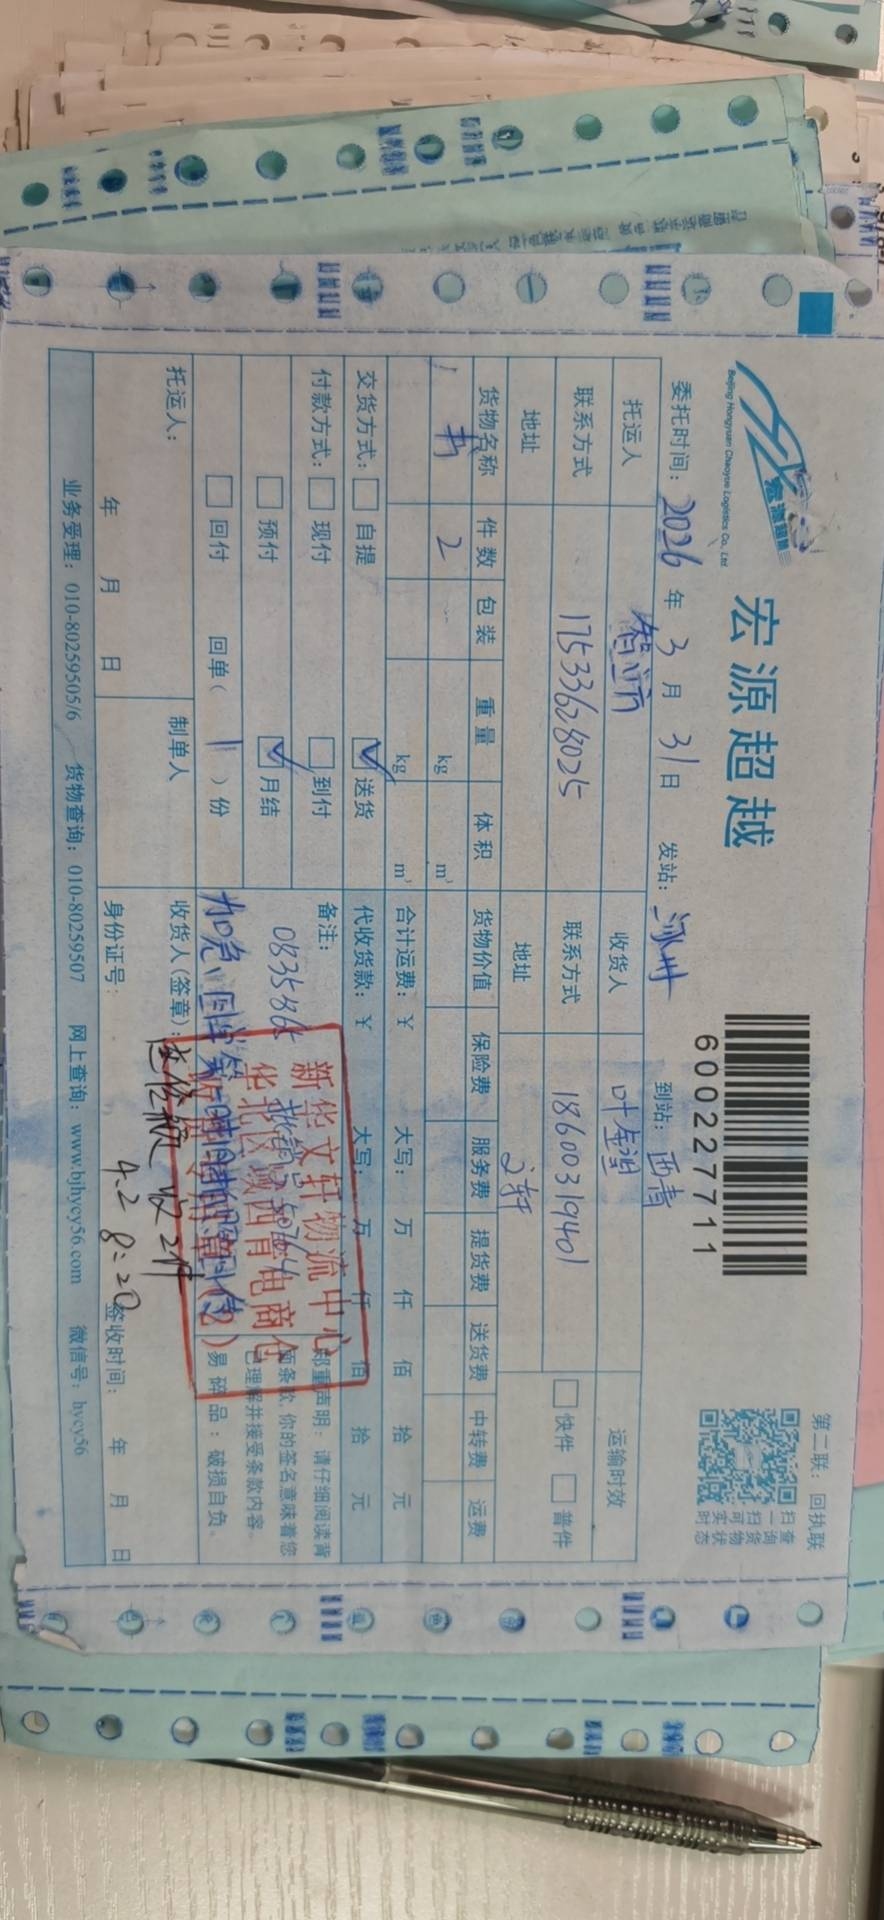 宏源超越
Beijing Hongyuan Chaoyue Logistics Co., Ltd
宏源超越
600227711
第二联：回执联
扫一扫可实时
查询货物状态
委托时间：2026年3月31日 发站： 到站：西青
托运人 智立方 收货人 运输时效
联系方式 17533628025 联系方式 18600319401 快件 普件
地址 地址 文轩
货物名称 件数 包装 重量 体积 货物价值 保险费 服务费 提货费 送货费 中转费 运费
书 2 kg m³
kg m³ 合计运费：￥ 大写： 万 仟 佰 拾 元
交货方式： 自提 送货 代收货款：￥ 大写： 万 仟 佰 拾 元
付款方式： 现付 到付 备注：
预付 月结
回付 回单（1）份
郑重声明：请仔细阅读背
面条款，你的签名意味着您
已理解并接受条款内容。
易碎品：破损自负。
新华文轩物流中心
华北区域西青电商仓
加急
托运人： 制单人 收货人（签章）：
收2件
4.2 8:20
年 月 日 身份证号： 签收时间： 年 月 日
业务受理：010-80259505/6 货物查询：010-80259507 网上查询：www.bjhycy56.com 微信号：hycy56